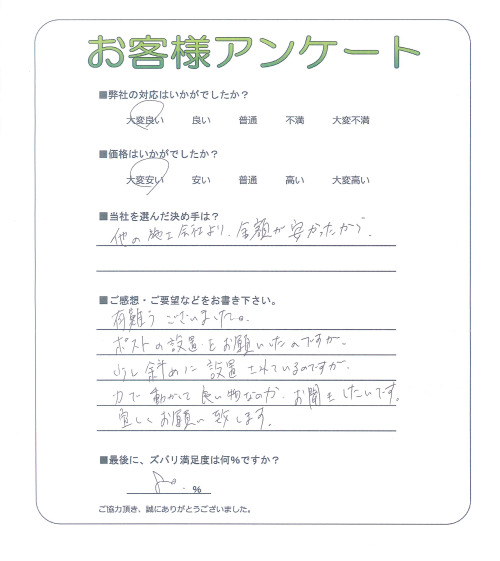 お客様アンケート
■弊社の対応はいかがでしたか？
大変良い 良い 普通 不満 大変不満
■価格はいかがでしたか？
大変安い 安い 普通 高い 大変高い
■当社を選んだ決め手は？
他の施工会社より、金額が安かったから。
■ご感想・ご要望などをお書き下さい。
有難うございました。
ポストの設置をお願いしたのですが、
少し斜めに設置されているのですが、
力で動かして良い物なのか、お聞きしたいです。
宜しくお願い致します。
■最後に、ズバリ満足度は何%ですか？
%
ご協力頂き、誠にありがとうございました。